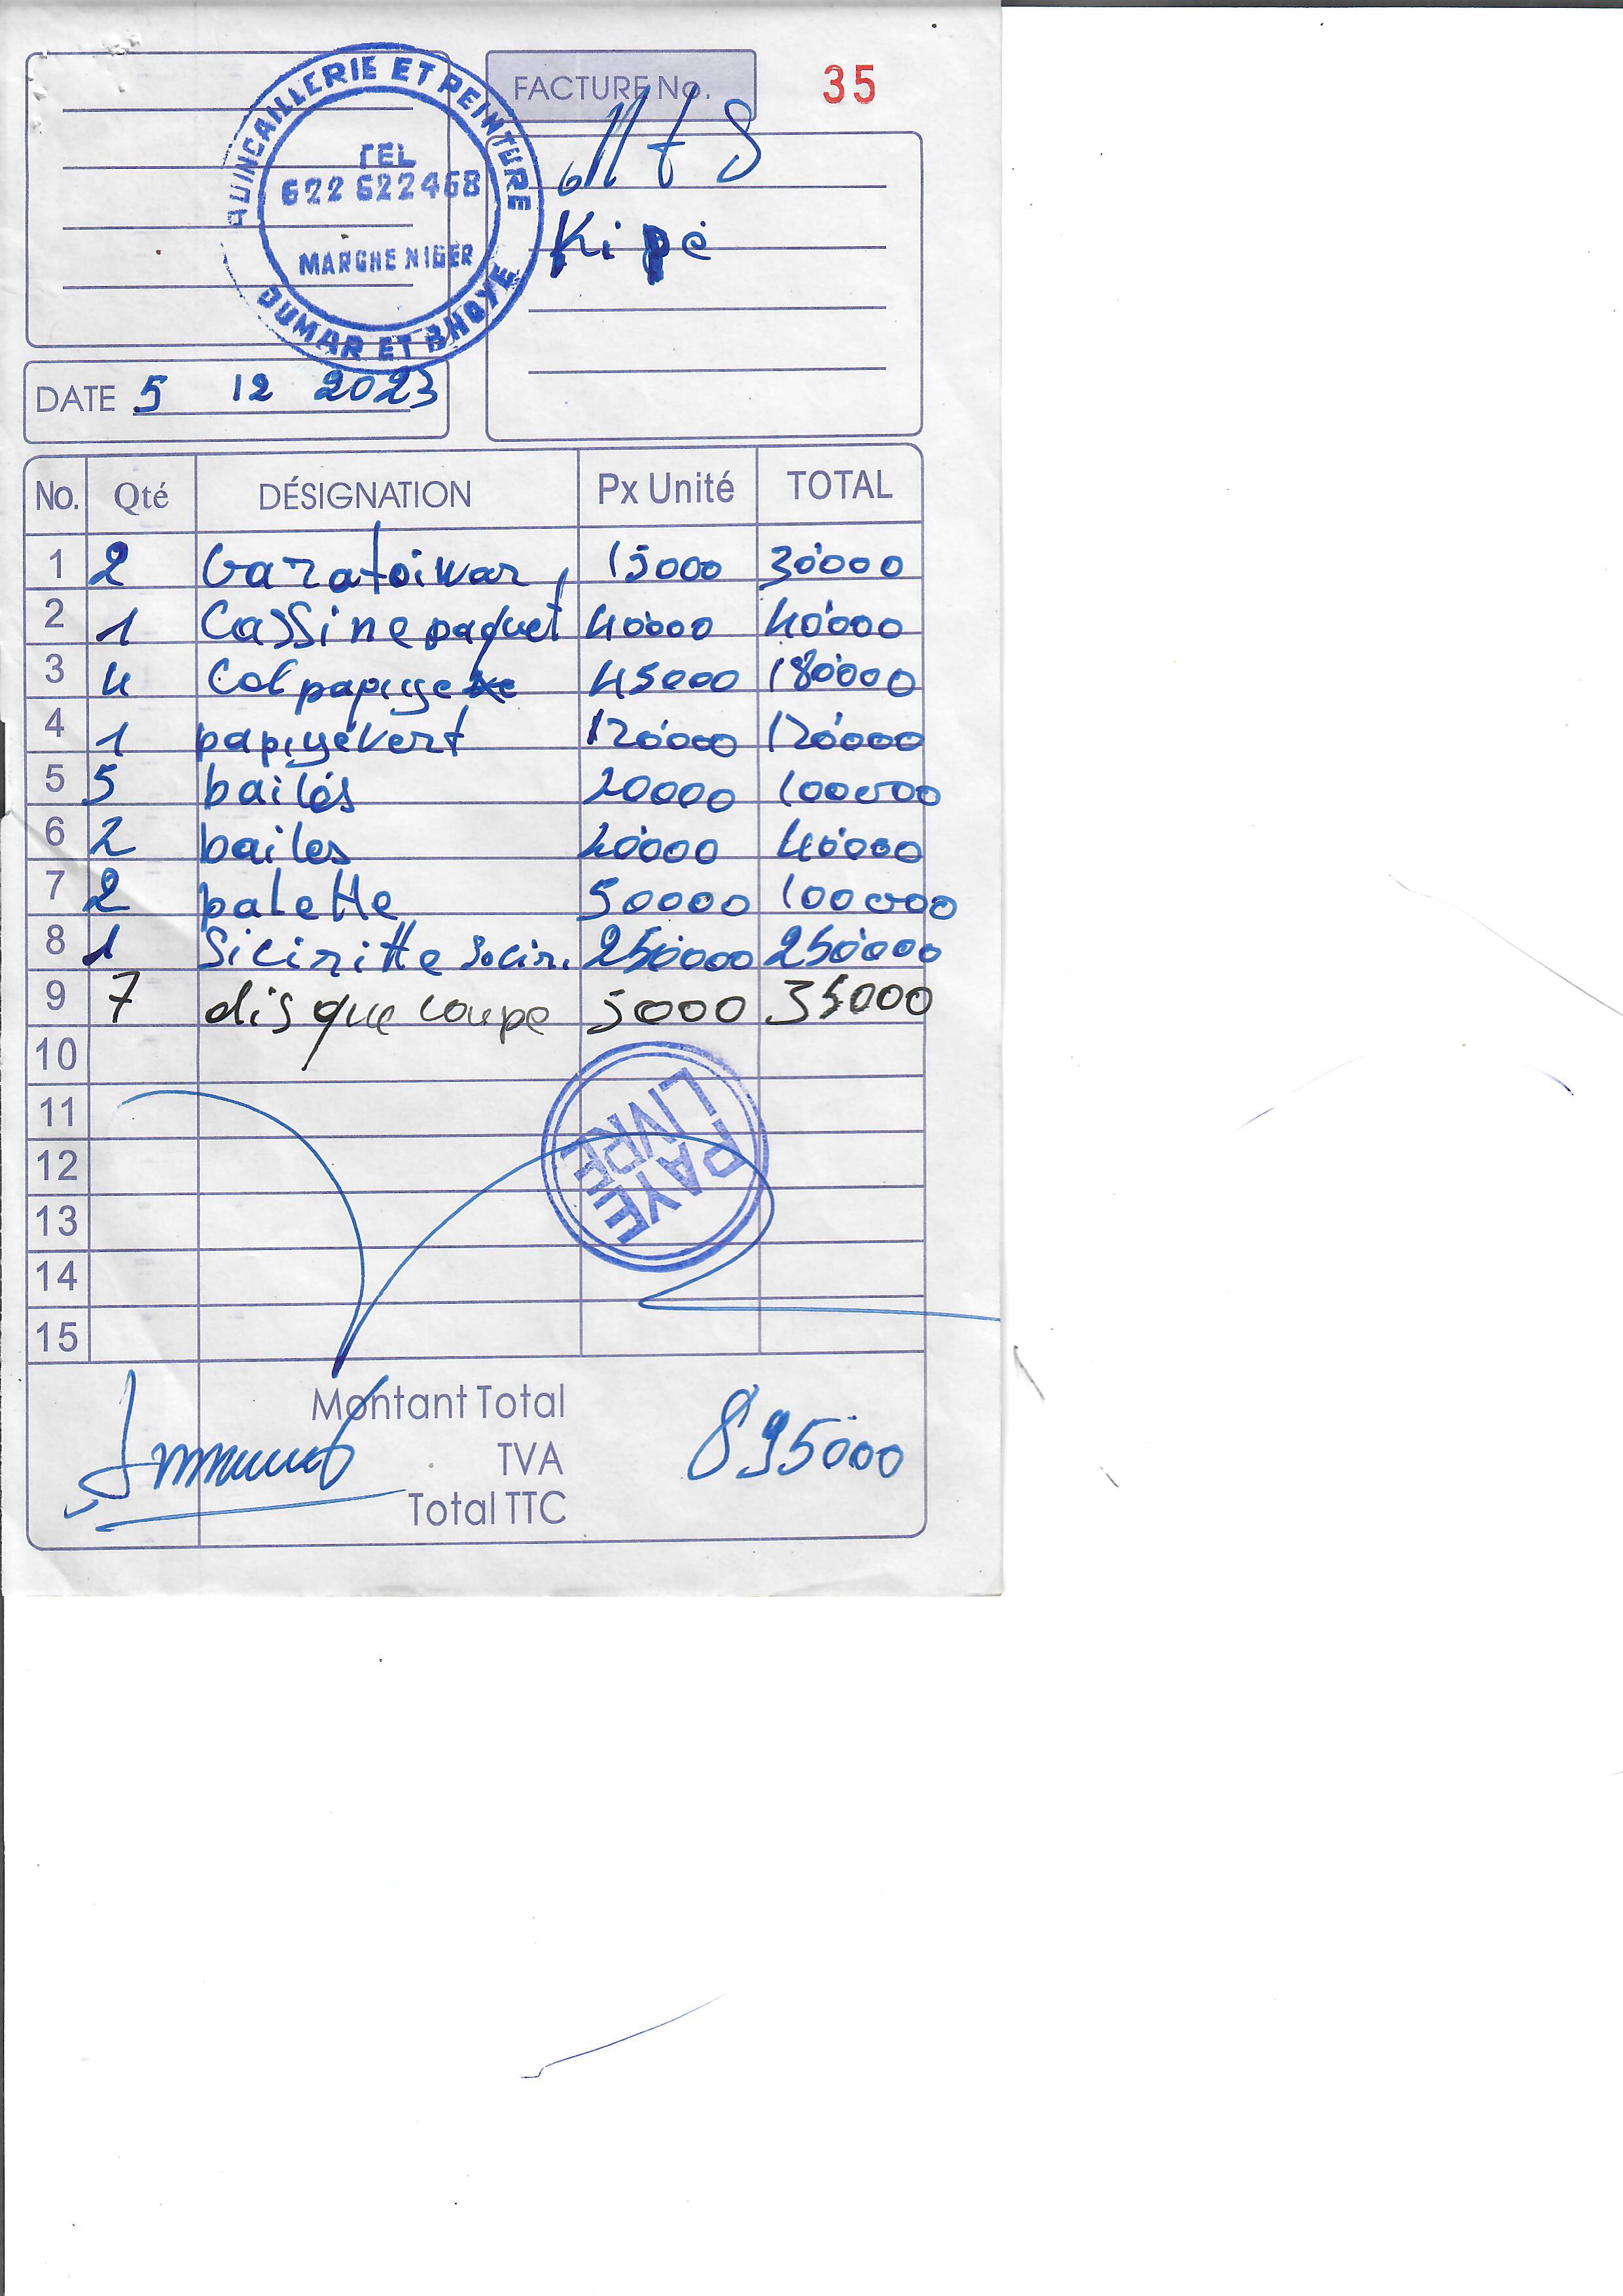 QUINCAILLERIE ET PEINTURE
TEL
622 622468
MARCHE NIGER
OUMAR ET BHOYE
FACTURE No. 35
MTS
Kipé
DATE 5 12 2023
No. Qté DÉSIGNATION Px Unité TOTAL
1 2 Garatoiwar 15000 30000
2 1 Cassine paquet 40000 40000
3 4 Col papiye 45000 180000
4 1 papiyévert 120000 120000
5 5 bailés 20000 100000
6 2 bailes 20000 40000
7 2 palette 50000 100000
8 1 Sicinitte 250000 250000
9 7 disque coupe 5000 35000
10
11
12
13
14
15
PAYE
LIVRE
Montant Total 895000
TVA
Total TTC